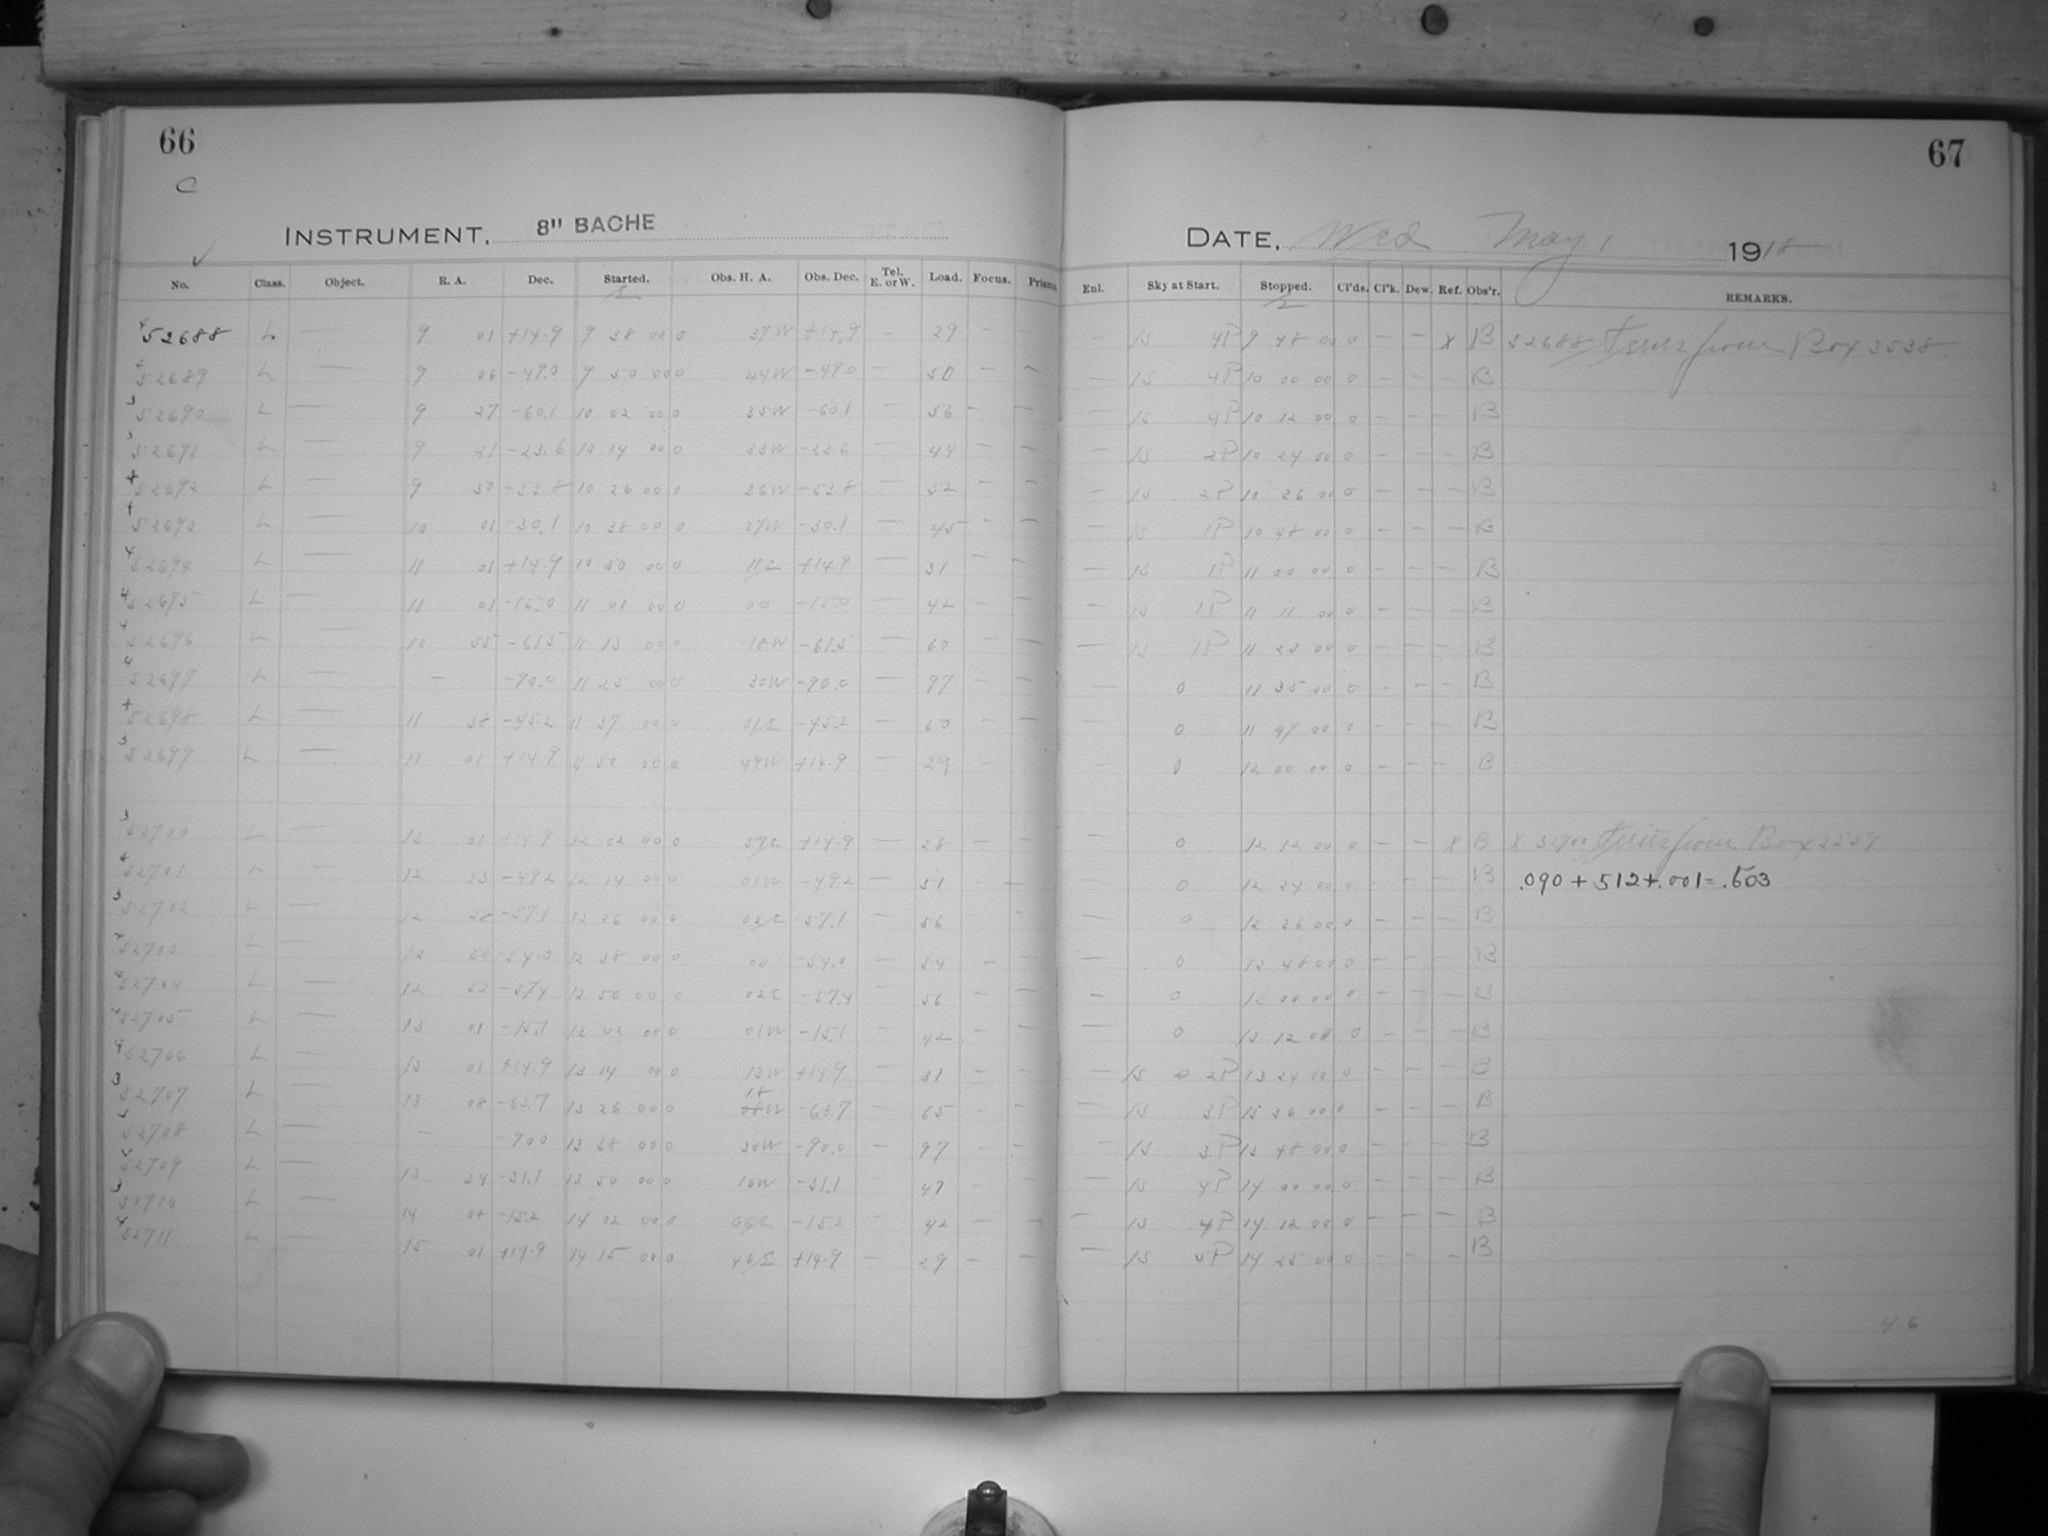 66
67
C
INSTRUMENT, 8" BACHE
DATE, Wed May 1 1918
No. Class. Object. R. A. Dec. Started. Obs. H. A. Obs. Dec. Tel. E. or W. Load. Focus. Prisms Enl. Sky at Start. Stopped. Cl'ds. Cl'k. Dew. Ref. Obs'r. REMARKS.
4 52688 L — 9 01 +14.9 9 38 00 0 37W +14.9 — 29 — — — 15 4P 9 48 00 0 — — X B 52688 first from Box 3538.
4 52689 L — 9 06 -49.0 9 50 00 0 44W -49.0 — 50 — — — 15 4P 10 00 00 0 — — — B
3 52690 L — 9 27 -60.1 10 02 00 0 35W -60.1 — 56 — — — 15 4P 10 12 00 0 — — — B
3 52691 L — 9 41 -23.6 10 14 00 0 33W -23.6 — 44 — — — 15 2P 10 24 00 0 — — — B
4 52692 L — 9 50 -53.8 10 26 00 0 36W -53.8 — 52 — — — 15 2P 10 36 00 0 — — — B
4 52693 L — 10 01 -30.1 10 38 00 0 37W -30.1 — 45 — — — 15 1P 10 48 00 0 — — — B
4 52694 L — 11 01 +14.9 10 50 00 0 11E +14.9 — 31 — — — 15 1P 11 00 00 0 — — — B
4 52695 L — 11 01 -15.0 11 01 00 0 00 -15.0 — 42 — — — 15 1P 11 11 00 0 — — — B
4 52696 L — 10 55 -61.5 11 13 00 0 18W -61.5 — 60 — — — 15 1P 11 23 00 0 — — — B
4 52697 L — — -90.0 11 25 00 0 30W -90.0 — 97 — — — 0 11 35 00 0 — — — B
4 52698 L — 11 38 -45.2 11 37 00 0 01E -45.2 — 50 — — — 0 11 47 00 0 — — — B
3 52699 L — 11 01 +14.9 11 50 00 0 49W +14.9 — 29 — — 0 12 00 00 0 — — — B
3 52700 L — 13 01 +14.9 12 02 00 0 59E +14.9 — 28 — — — 0 12 12 00 0 — — X B X 52700 first from Box 3539
4 52701 L — 12 13 -49.2 12 14 00 0 01W -49.2 — 51 — — — 0 12 24 00 0 — — — B .090 + 512 + .001 = .603
3 52702 L — 12 28 -57.1 12 26 00 0 02E -57.1 — 56 — — 0 12 36 00 0 — — — B
4 52703 L — 12 38 -54.0 12 38 00 0 00 -54.0 — 54 — — — 0 12 48 00 0 — — — B
4 52704 L — 12 52 -57.4 12 50 00 0 02E -57.4 — 56 — — — 0 13 00 00 0 — — — B
4 52705 L — 13 01 -15.1 13 02 00 0 01W -15.1 — 42 — — — 0 13 12 00 0 — — — B
4 52706 L — 13 01 +14.9 13 14 00 0 13W +14.9 — 31 — — — 15 2P 13 24 00 0 — — — B
3 52707 L — 13 08 -63.7 13 26 00 0 18 W -63.7 — 65 — — — 15 3P 13 36 00 0 — — — B
52708 L — — -90.0 13 38 00 0 30W -90.0 — 97 — — — 15 3P 13 48 00 0 — — — B
52709 L — 13 34 -31.1 13 50 00 0 16W -31.1 — 47 — — — 15 4P 14 00 00 0 — — — B
3 52710 L — 14 08 -15.2 14 02 00 0 06E -15.2 — 42 — — — 15 4P 14 12 00 0 — — — B
4 52711 L — 15 01 +14.9 14 15 00 0 46E +14.9 — 29 — — — 15 5P 14 25 00 0 — — — B
4.6